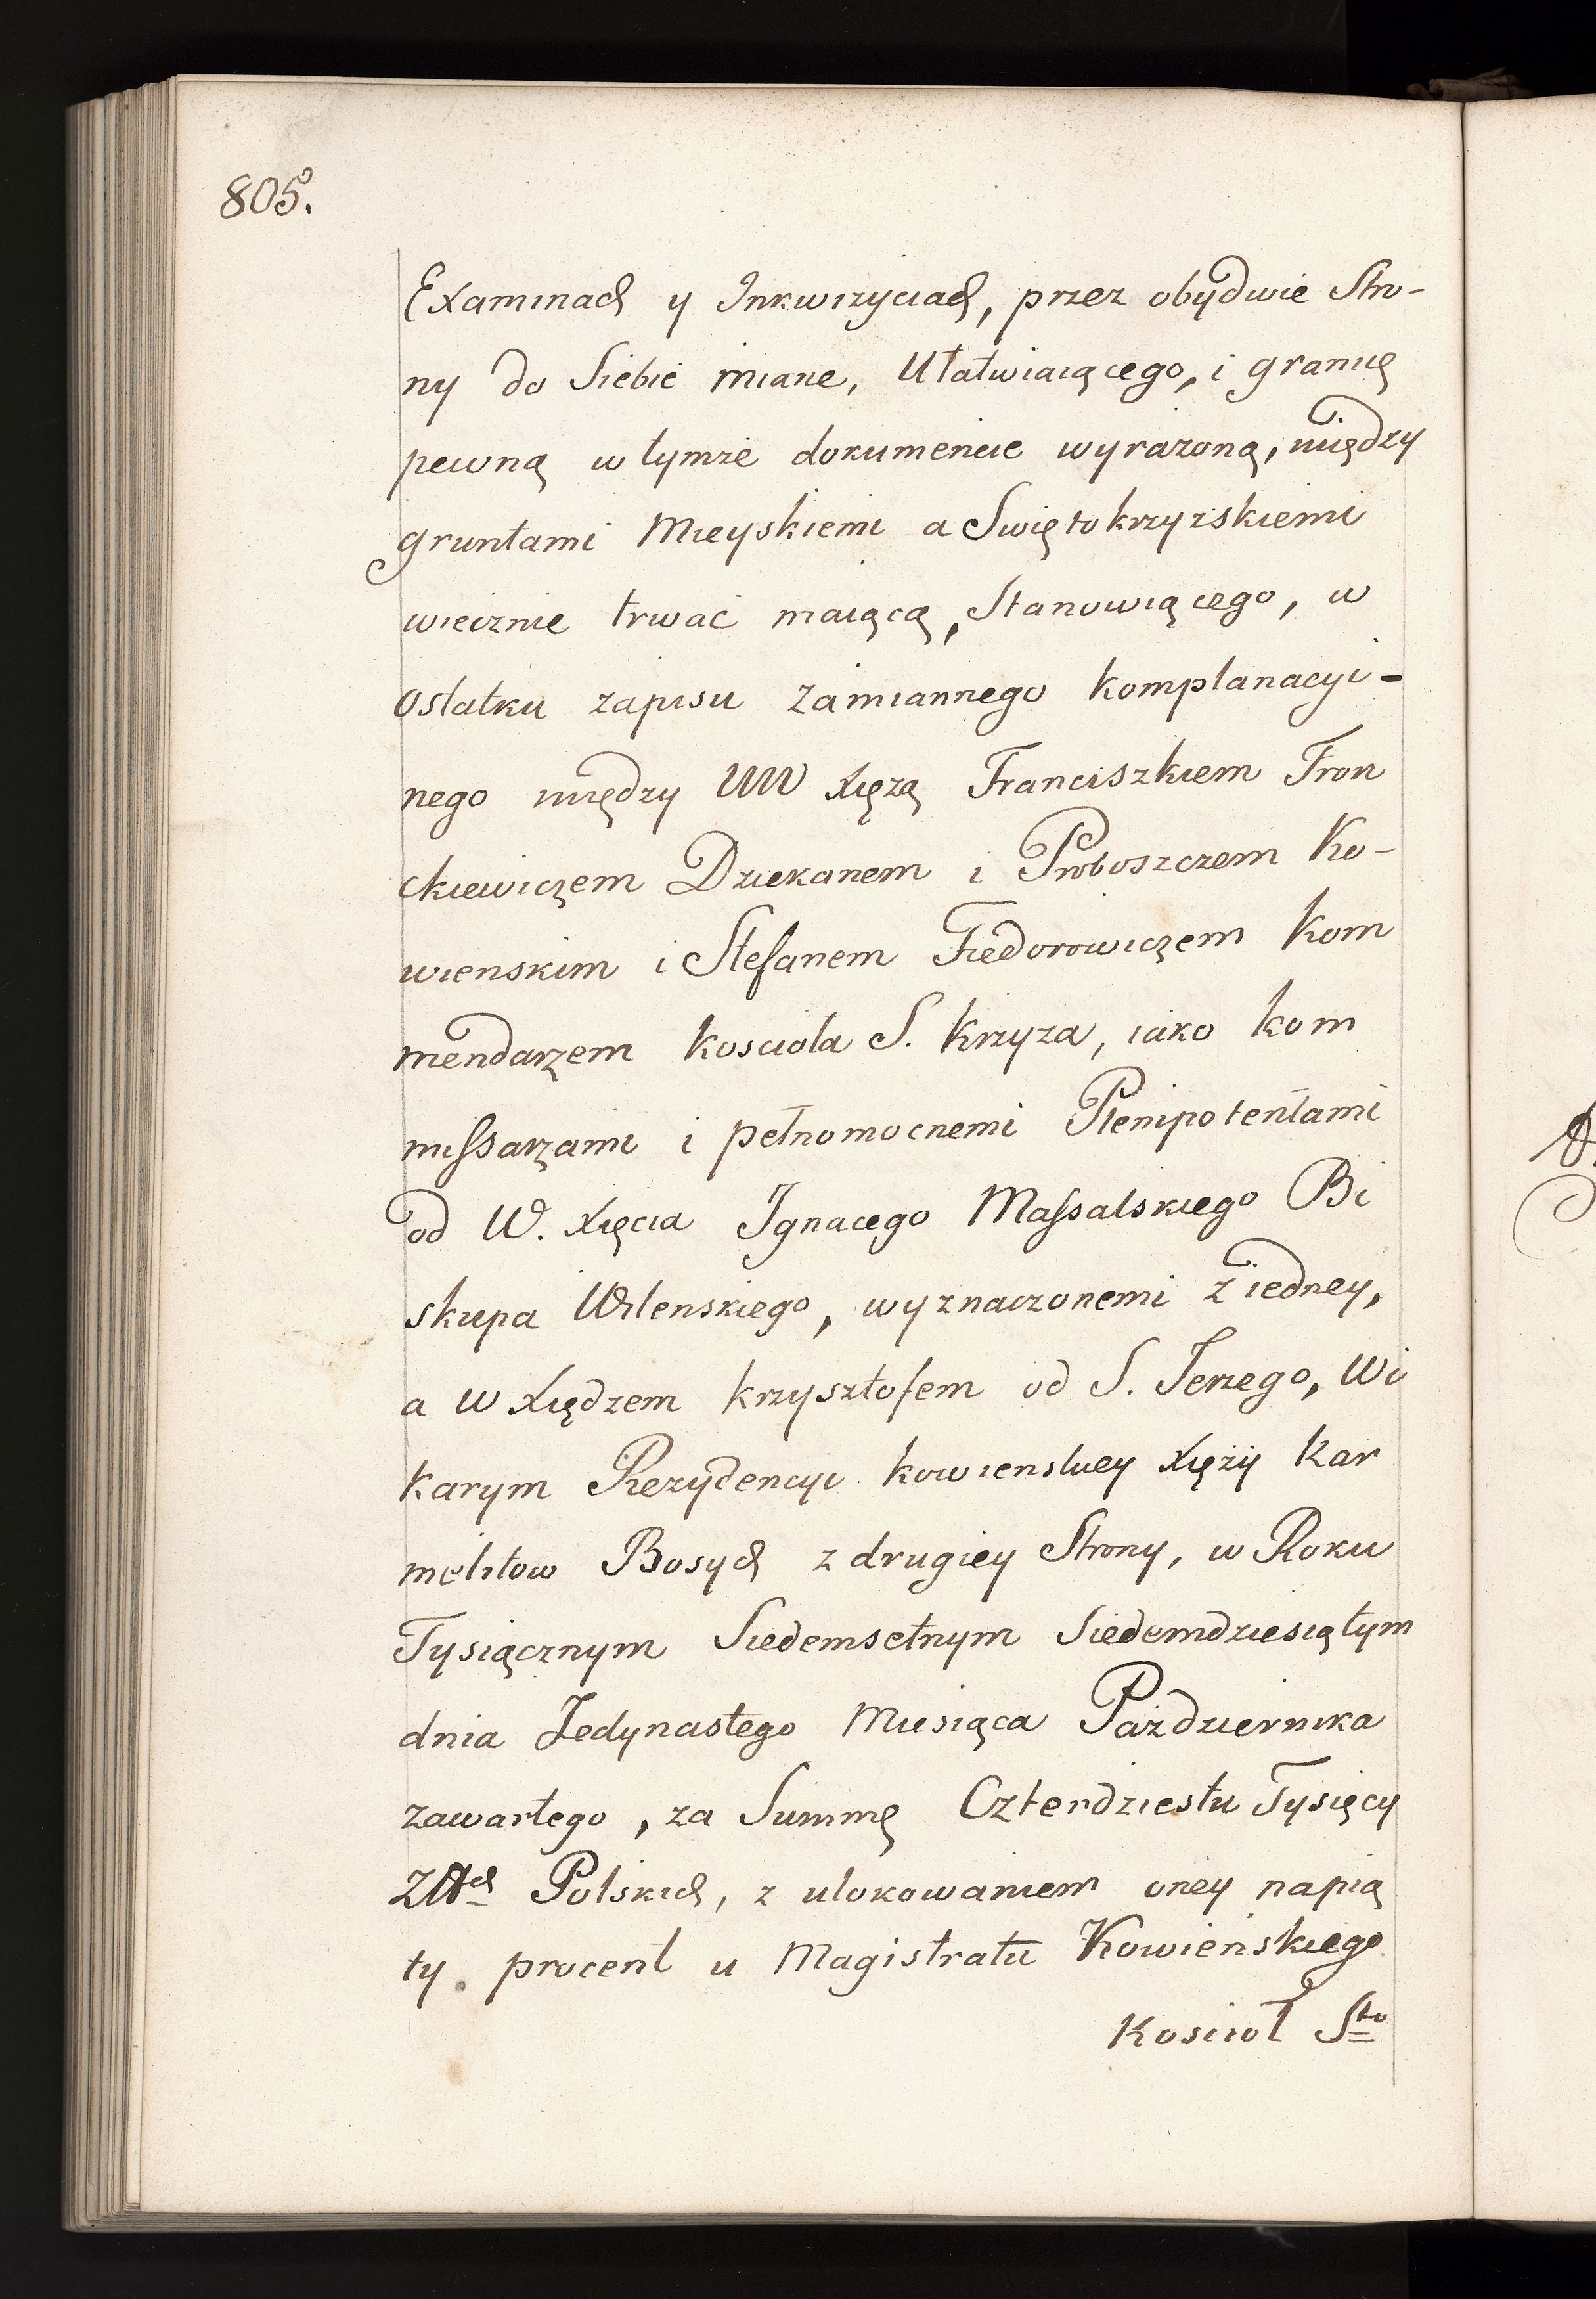 805.
Examinach y Inkwizyciach, przez obydwie Stro-
ny do Siebie miane, Ułatwiaiącego, i granię
pewną w tymże dokumencie wyrażoną, między
gruntami Mieyskiemi a Swiętokrzyzskiemi
wiecznie trwać maiącą, Stanowiącego, w
Ostatku zapisu zamiannego komplanacyi-
nego między WW Xiężą Franciszkiem Fron
ckiewiczem Dziekanem i Proboszczem Ko-
wienskim i Stefanem Fiedorowiczem Kom
mendarzem Kosciola S. Krzyza, iako kom
missarzami i pełnomocnemi Plenipotentami
od W. Xięcia Ignacego Massalskiego Bi
skupa Wilenskiego, wyznaczonemi z iedney,
a W Xiędzem Krzysztofem od S. Jerzego, Wi
karym Rezydencyi kowienskiey Xięży Kar
melitow Bosych z drugiey Strony, w Roku
Tysiącznym Siedemsetnym Siedemdziesiątym
dnia Jedynastego Miesiąca Października
zawartego, za Summę Czterdziestu Tysięcy
Złtch Polskich, z ulokowaniem oney napią
ty procent u Magistratu Kowieńskiego
Kosciol Sto